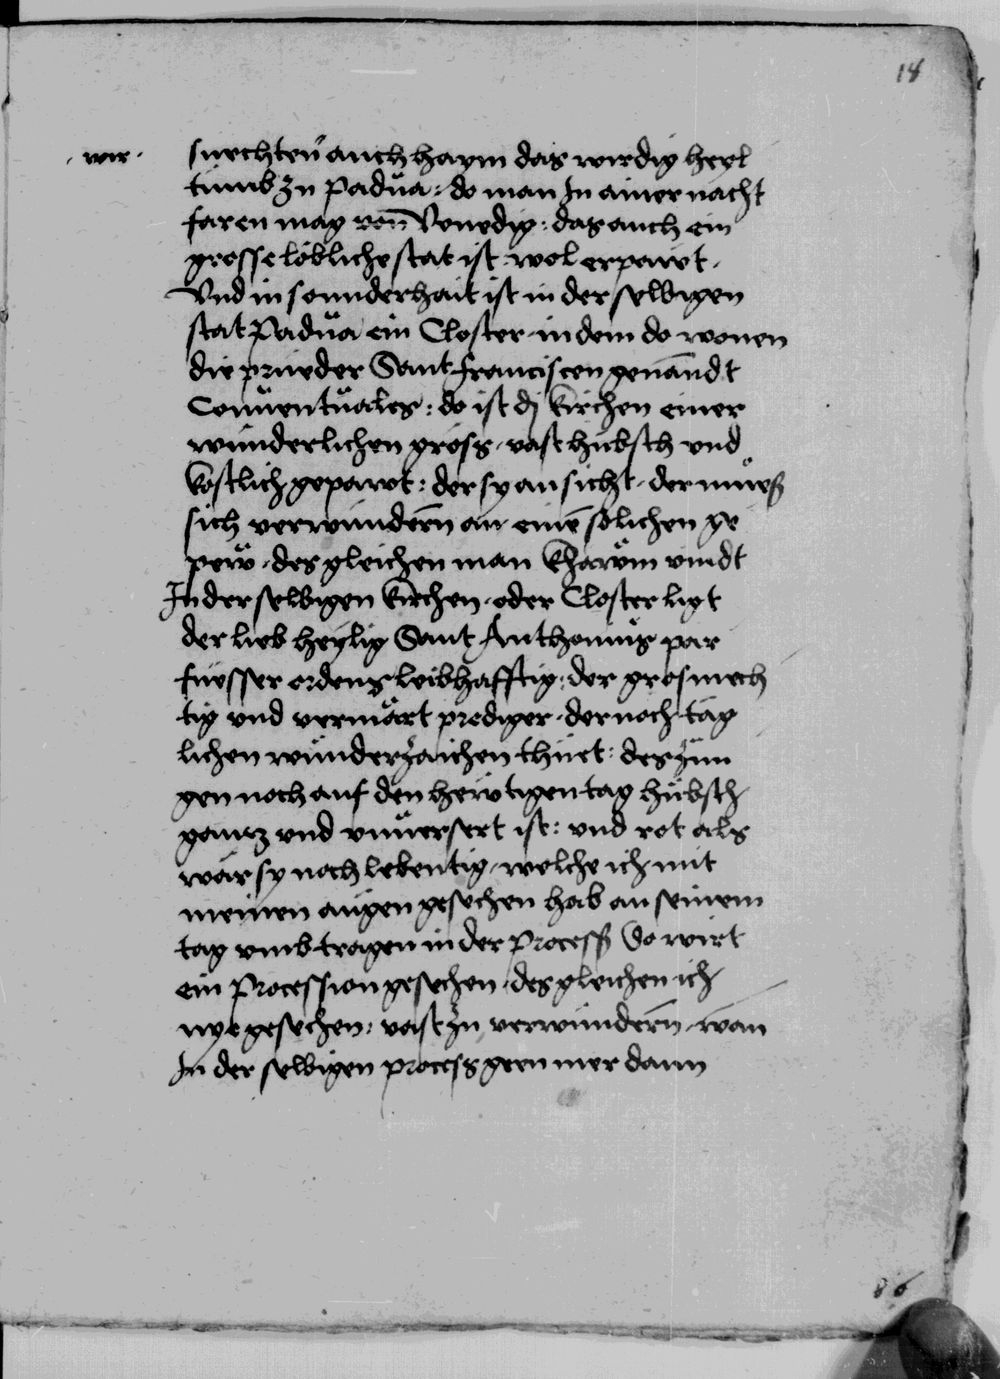 18
· wir · suechten auch haym das wirdig heyl
tumb zu Padua : do man In ainer nacht
faren mag von Venedig : das auch ein
grosse löbliche stat ist : wol erpawt ·
Vnd in sounderhait ist in der selbigen
stat Padua ein Closter · in dem do wonen
die prueder Sant franciscen genandt
Conuentuales : do ist dj kirchen einer
wunderlichen gröss · vast hubsch vnd
kostlich gepawt : der sy ansicht · der mueß
sich verwundern an einem solichen ge
pew · des gleichen man khawm vindt
In der selbigen kirchen · oder Closter ligt
der lieb heylig Sant Anthonius par
fuesser ordens leibhafftig : der grosmech
tig vnd vermärt prediger · der noch täg
lichen wunderzaichen thuet : des zun
gen noch auf den hewtigen tag hubsch
gantz vnd vnuersert ist : vnd rot als
wär sy noch lebentig · welche ich mit
meinen augen gesechen hab an seinem
tag vmb tragen in der Process So wirt
ein Procession gesechen · des gleichen ich
nye gesechen : vast zu verwundern · wan
In der selbigen process geen mer dann
86